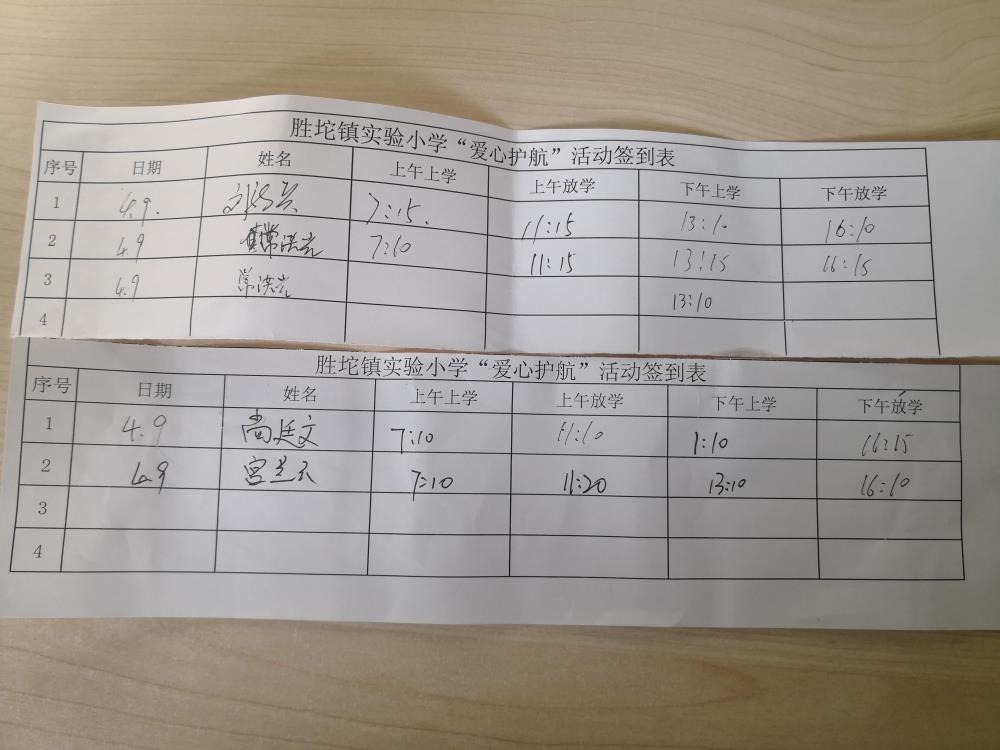 胜坨镇实验小学“爱心护航”活动签到表
序号 日期 姓名 上午上学 上午放学 下午上学 下午放学
1 4.9. 7:15. 11:15 13:10 16:10
2 4.9 常洪岩 7:10 11:15 13:15 16:15
3 4.9 常洪岩 13:10
4
胜坨镇实验小学“爱心护航”活动签到表
序号 日期 姓名 上午上学 上午放学 下午上学 下午放学
1 4.9 尚廷文 7:10 11:10 1:10 16:15
2 4.9 宫兰云 7:10 11:20 13:10 16:10
3
4